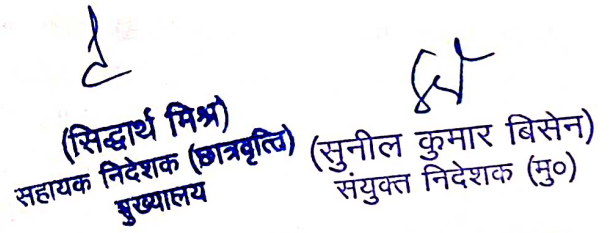 (सिद्धार्थ मिश्र)
सहायक निदेशक (छात्रवृत्ति)
मुख्यालय
(सुनील कुमार बिसेन)
संयुक्त निदेशक (मु०)